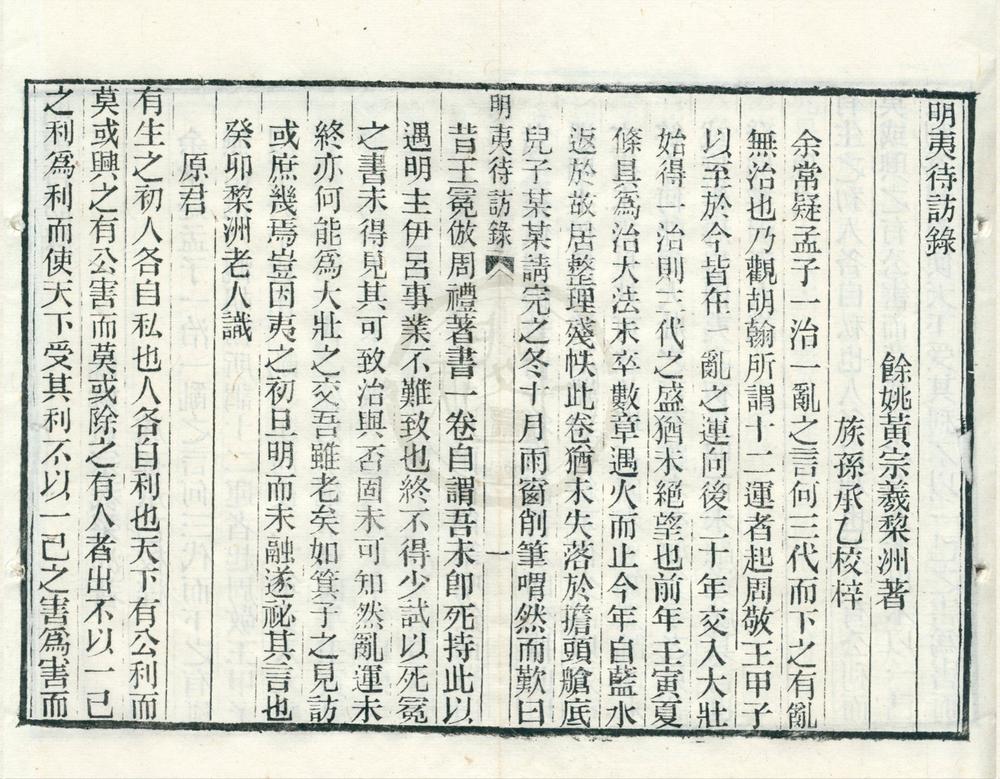 明夷待訪錄
餘姚黃宗羲棃洲著
族孫承乙校梓
余常疑孟子一治一亂之言何三代而下之有亂
無治也乃觀胡翰所謂十二運者起周敬王甲子
以至於今皆在一亂之運向後二十年交入大壯
始得一治則三代之盛猶未絕望也前年壬寅夏
條具為治大法未卒數章遇火而止今年自藍水
返於故居整理殘帙此卷猶未失落於擔頭艙底
兒子某某請完之冬十月雨窗削筆喟然而歎曰
明夷待訪錄 一
昔王冕倣周禮著書一卷自謂吾未卽死持此以
遇明主伊呂事業不難致也終不得少試以死冕
之書未得見其可致治與否固未可知然亂運未
終亦何能為大壯之交吾雖老矣如箕子之見訪
或庶幾焉豈因夷之初旦明而未融遂祕其言也
癸卯棃洲老人識
原君
有生之初人各自私也人各自利也天下有公利而
莫或興之有公害而莫或除之有人者出不以一己
之利爲利而使天下受其利不以一己之害爲害而